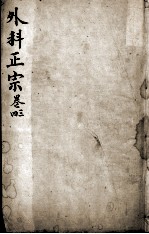 外科正宗 卷三四